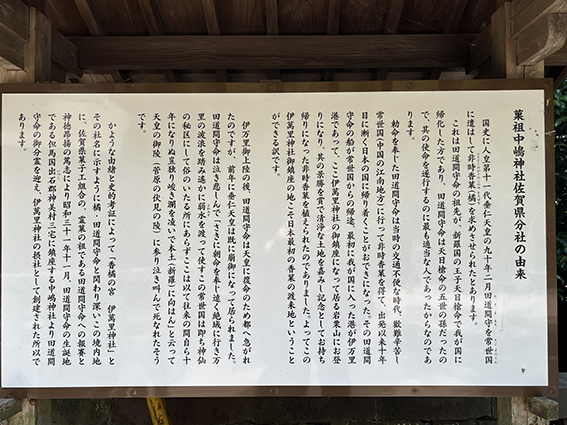 菓祖中嶋神社佐賀県分社の由来
国史に人皇第十一代垂仁天皇の九十年二月田道間守を常世国
に遣はして非時香菓(橘)を求めさせられたとあります。
これは田道間守命の祖先が、新羅国の王子天日槍命で我が国に
帰化した方であり、田道間守命は天日槍命の五世の孫だったの
で、其の使命を遂行するのに最も適当な人であったからなのであ
ります。
勅命を奉じた田道間守命は当時の交通不便な時代、艱難辛苦し
常世国(中国の江南地方)に行って非時香菓を得て、出発以来十年
目に漸く日本の国に帰り着くことがおできになった。その田道間
守命の船が常世国からの帰途、最初に我が国に入った港が伊万里
港であって、ここ伊萬里神社の御鎮座になって居る岩栗山にお登
りになり、其の景勝を賞で清浄な土地を嘉みし記念としてお持ち
帰りになった非時香菓を植えられたのでありました。よってこの
伊萬里神社御鎮座の地こそ日本最初の香菓の渡来地ということ
ができる訳です。
伊万里御上陸の後、田道間守命は天皇に復命のため都へ急がれ
たのですが、前年に垂仁天皇は既に崩御になって居られました。
田道間守命は泣き悲しんで「さきに朝命を奉じ遠く絶域に行き万
里の波浪を踏み遙かに弱水を渡って使すこの常世国は即ち神仙
の秘区にして俗のいたる所にあらずここは以て往来の間自ら十
年になりぬ豈独り峻き瀾を凌いで本土(新羅)に向はん」と云って
天皇の御陵(菅原の伏見の陵)に参り泣き叫んで死なれたそう
です。
かような由緒と史的考証によって「香橘の宮 伊萬里神社」と
その社号に示すように橘・田道間守命と関わり深いこの境内地
に、佐賀県菓子工組合の、菓業の祖である田道間守命への報賽と
神徳昂揚の篤志により昭和三十一年十一月、田道間守命の生誕地
である但馬国出石郡神美村三宅に鎮座する中嶋神社より田道間
守命の御分霊を迎え、伊萬里神社の摂社として創建された所以で
あります。